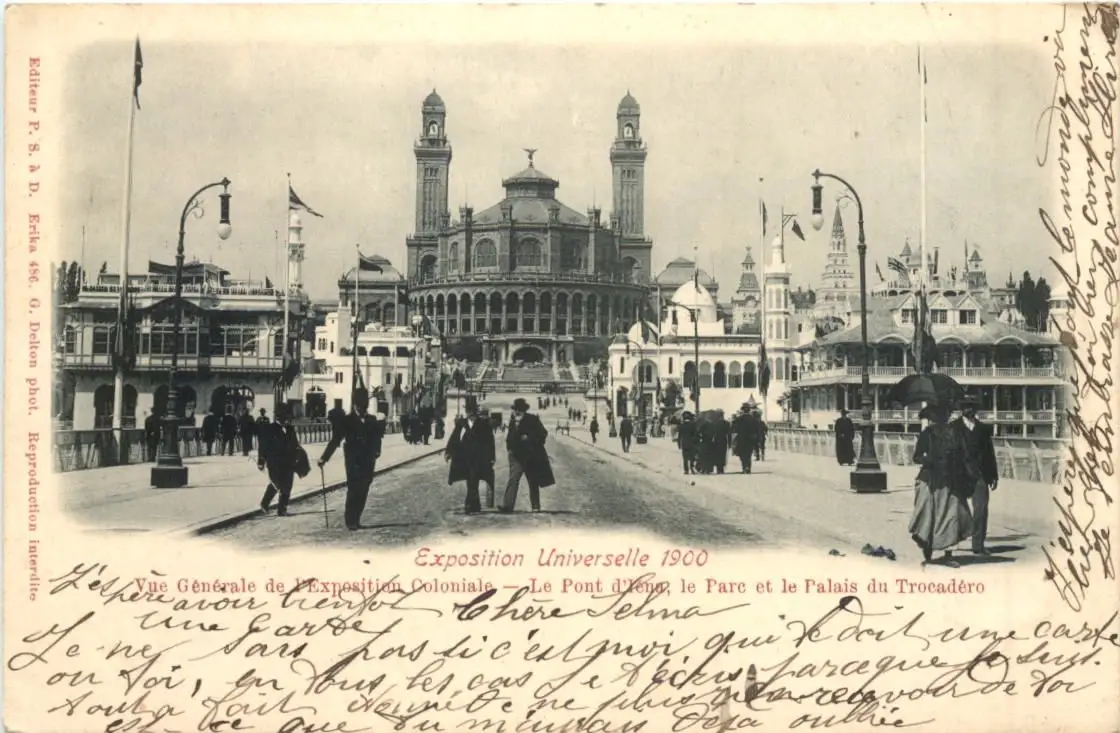 Editeur P. S. à D. Erika 486. G. Delton phot. Reproduction interdite
Exposition Universelle 1900
Vue Générale de l'Exposition Coloniale. — Le Pont d'Iéna, le Parc et le Palais du Trocadéro
J'espère avoir bientôt
une carte
Chère Selma
Je ne sais pas si c'est moi qui te doit une carte
ou toi, en tous les cas je t'écris parceque je suis
tout à fait de ne plus recevoir de toi
est-ce que tu m'aurais déjà oubliée
J'espère que tout le monde va
bien